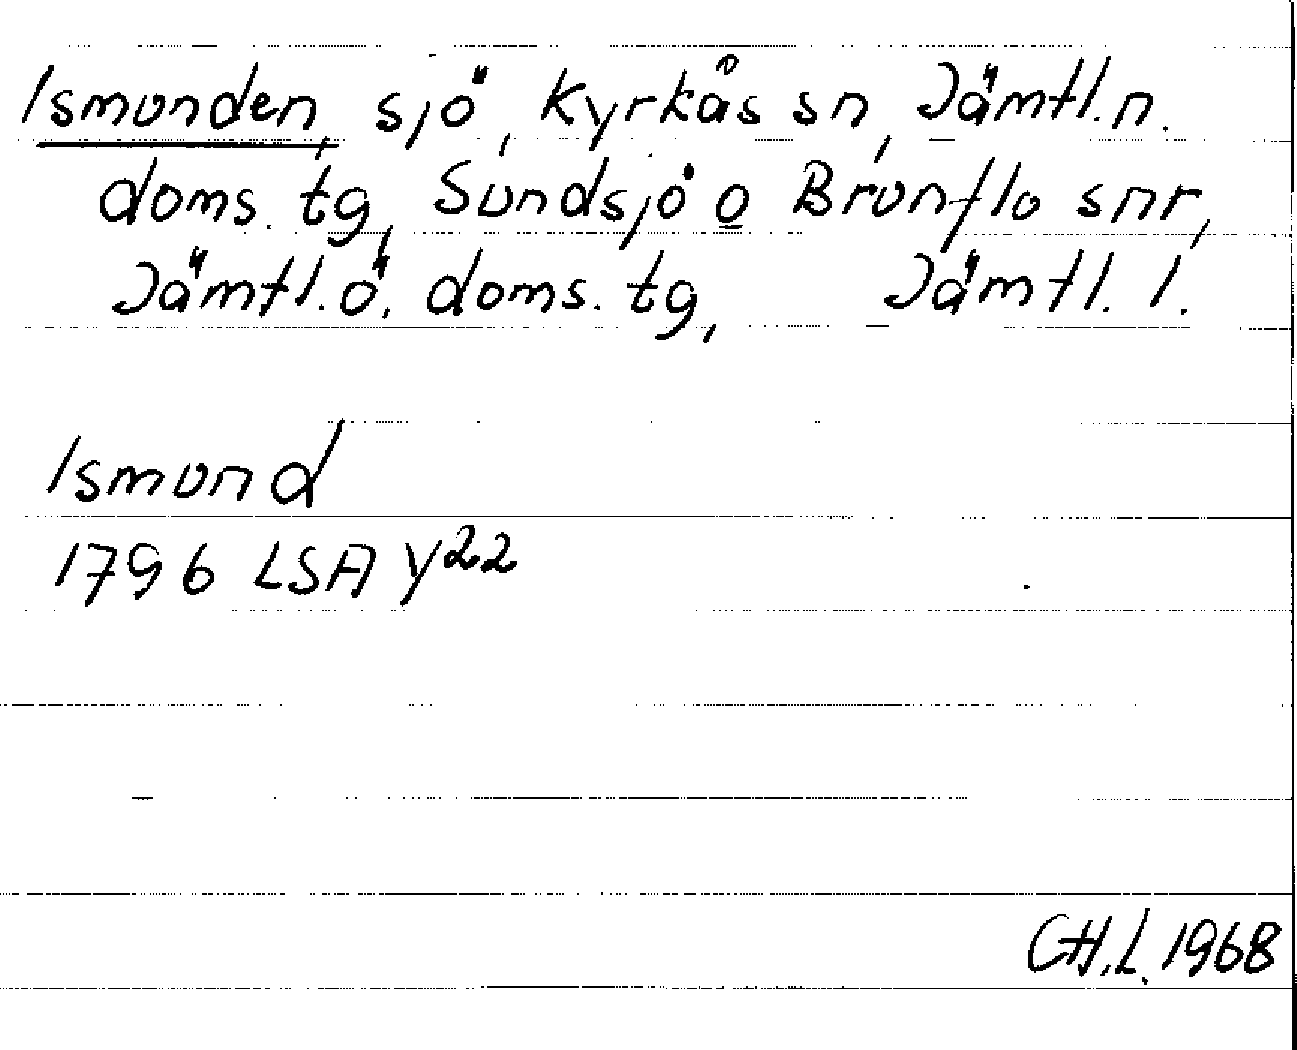 Ismunden, sjö, Kyrkås sn, Jämtl.n.
doms. tg, Sundsjö o Brunflo snr,
Jämtl.ö. doms. tg, Jämtl. l.
Ismund
1796 LSA Y22
CH.L. 1968